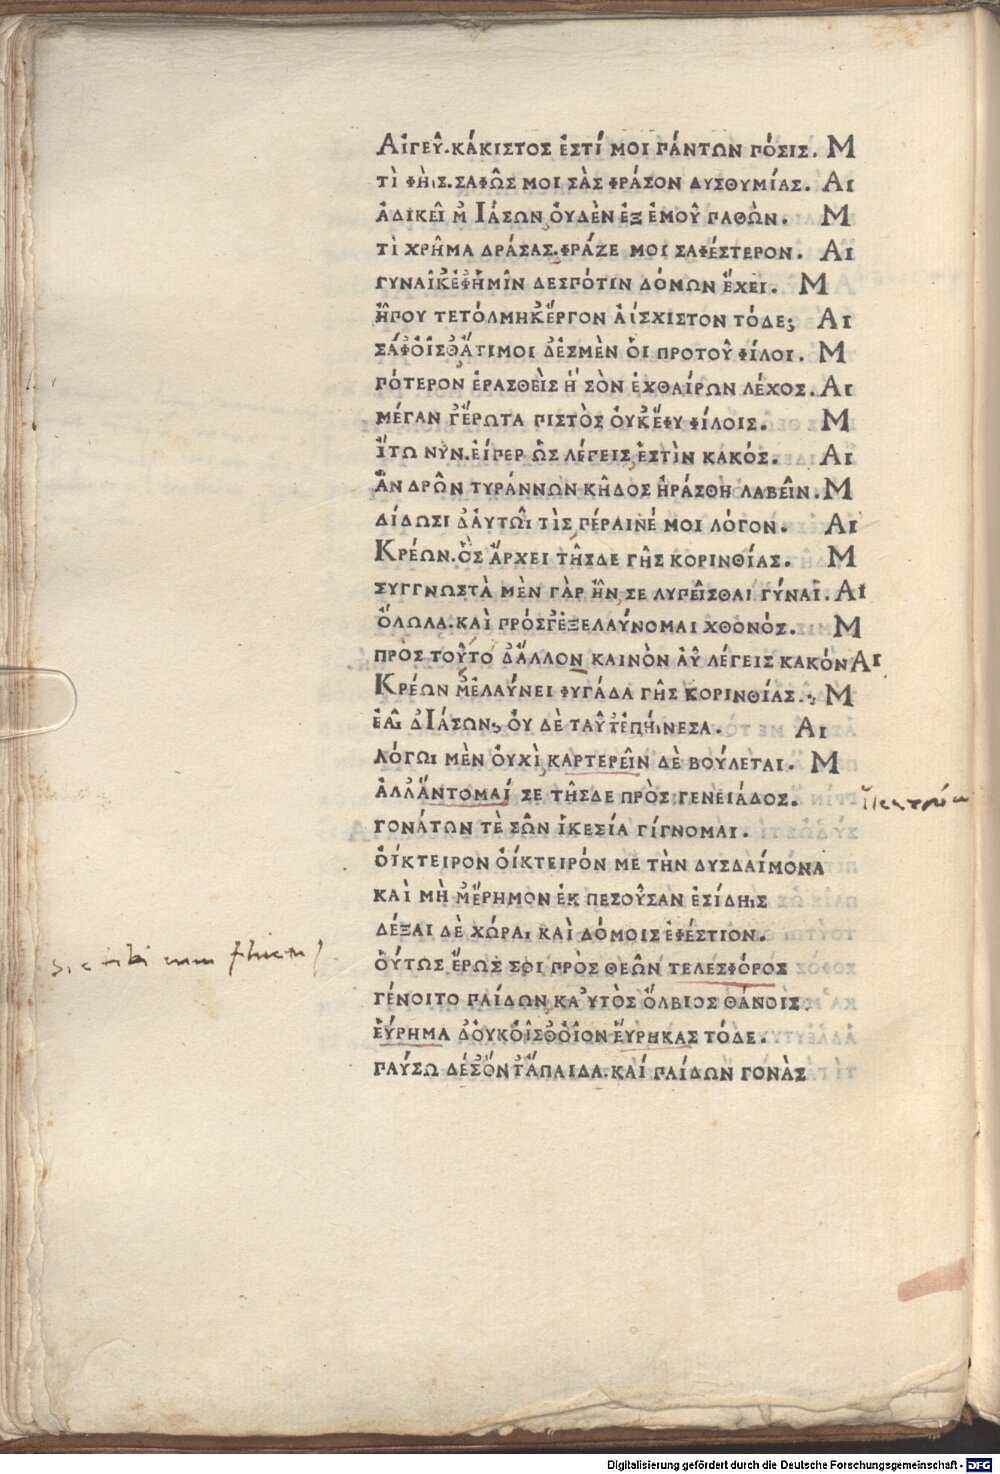 ΑἸΓΕΥ͂.ΚΆΚΙΣΤΟΣ ἘΣΤΊ ΜΟΙ ΠΆΝΤΩΝ ΠΌΣΙΣ. Μ
ΤῚ ΦῊΙΣ.ΣΑΦΩ͂Σ ΜΟΙ ΣᾺΣ ΦΡΆΣΟΝ ΔΥΣΘΥΜΊΑΣ. ΑΙ
ἈΔΙΚΕΙ͂ Μ᾽ ἸΆΣΩΝ ὈΥΔῈΝ ἘΞ ἘΜΟΥ͂ ΠΑΘῺΝ. Μ
ΤῚ ΧΡΗ͂ΜΑ ΔΡΆΣΑΣ.ΦΡΆΖΕ ΜΟΙ ΣΑΦΈΣΤΕΡΟΝ. ΑΙ
ΓΥΝΑΙ͂Κ᾽ἘΦ᾽ἩΜΙ͂Ν ΔΕΣΠΌΤΙΝ ΔΌΜΩΝ ἜΧΕΙ. Μ
ἮΠΟΥ ΤΕΤΌΛΜΗΚ᾽ἜΡΓΟΝ ἈΊΣΧΙΣΤΟΝ ΤΌΔΕ; ΑΙ
ΣΆΦ᾽ὈΙ͂ΣΘ᾽ἌΤΙΜΟΙ Δ᾽ἘΣΜῈΝ ὉΙ ΠΡΟΤΟΥ͂ ΦΊΛΟΙ. Μ
ΠΌΤΕΡΟΝ ἘΡΑΣΘΕῚΣ Ἢ ΣῸΝ ἘΧΘΑΊΡΩΝ ΛΈΧΟΣ. ΑΙ
ΜΈΓΑΝ Γ᾽ἜΡΩΤΑ ΠΙΣΤῸΣ ὈΥΚ᾽ἜΦΥ ΦΊΛΟΙΣ. Μ
ἼΤΩ ΝΥΝ.ἘΊΠΕΡ ὩΣ ΛΈΓΕΙΣ ἘΣΤῚΝ ΚΑΚΌΣ. ΑΙ
ἈΝΔΡΩ͂Ν ΤΥΡΆΝΝΩΝ ΚΗ͂ΔΟΣ ἨΡΆΣΘΗ ΛΑΒΕΙ͂Ν. Μ
ΔΊΔΩΣΙ Δ᾽ἈΥΤΩ͂Ι ΤῚΣ ΠΈΡΑΙΝΈ ΜΟΙ ΛΌΓΟΝ. ΑΙ
ΚΡΈΩΝ.ὋΣ ἌΡΧΕΙ ΤΗ͂ΣΔΕ ΓΗ͂Σ ΚΟΡΙΝΘΊΑΣ. Μ
ΣΥΓΓΝΩΣΤᾺ ΜῈΝ ΓᾺΡ ἮΝ ΣΕ ΛΥΠΕΙ͂ΣΘΑΙ ΓΎΝΑΙ. ΑΙ
ὌΛΩΛΑ.ΚΑῚ ΠΡΌΣΓ᾽ἘΞΕΛΑΎΝΟΜΑΙ ΧΘΟΝΌΣ. Μ
ΠΡῸΣ ΤΟΥ͂ΤΟ Δ᾽ἌΛΛΟΝ ΚΑΙΝῸΝ ἈΥ͂ ΛΈΓΕΙΣ ΚΑΚΌΝ ΑΙ
ΚΡΈΩΝ Μ᾽ἘΛΑΎΝΕΙ ΦΥΓΆΔΑ ΓΗ͂Σ ΚΟΡΙΝΘΊΑΣ. Μ
ἘΑ͂Ι Δ᾽ἸΆΣΩΝ; ὈΥ ΔῈ ΤΑΥ͂Τ᾽ἘΠΉΙΝΕΣΑ. ΑΙ
ΛΌΓΩΙ ΜῈΝ ὈΥΧῚ ΚΑΡΤΕΡΕΙ͂Ν ΔῈ ΒΟΎΛΕΤΑΙ. Μ
ἈΛΛ᾽ἌΝΤΟΜΑΊ ΣΕ ΤΗ͂ΣΔΕ ΠΡῸΣ ΓΕΝΕΙΆΔΟΣ.
ΓΟΝΆΤΩΝ ΤῈ ΣΩ͂Ν ἹΚΕΣΊΑ ΓΊΓΝΟΜΑΙ.
ὌΙΚΤΕΙΡΟΝ ὌΙΚΤΕΙΡΌΝ ΜΕ ΤῊΝ ΔΥΣΔΑΊΜΟΝΑ
ΚΑῚ ΜῊ Μ᾽ἜΡΗΜΟΝ ἘΚ ΠΕΣΟΥ͂ΣΑΝ ἘΣΊΔΗΙΣ
ΔΈΞΑΙ ΔῈ ΧΏΡΑΙ ΚΑῚ ΔΌΜΟΙΣ ἘΦΈΣΤΙΟΝ.
ὉΎΤΩΣ ἜΡΩΣ ΣΟΙ ΠΡῸΣ ΘΕΩ͂Ν ΤΕΛΕΣΦΌΡΟΣ
ΓΈΝΟΙΤΟ ΠΑΊΔΩΝ ΚΑ᾽ΥΤῸΣ ὌΛΒΙΟΣ ΘΆΝΟΙΣ.
ἙΎΡΗΜΑ Δ᾽ὈΥΚ᾽ὈΙ͂ΣΘ᾽ὉΙ͂ΟΝ ἝΥΡΗΚΑΣ ΤΌΔΕ.
ΠΑΎΣΩ ΔΈΣ᾽ὌΝΤ᾽ἌΠΑΙΔΑ.ΚΑΊ ΠΑΊΔΩΝ ΓΟΝᾺΣ
Digitalisierung gefördert durch die Deutsche Forschungsgemeinschaft - DFG